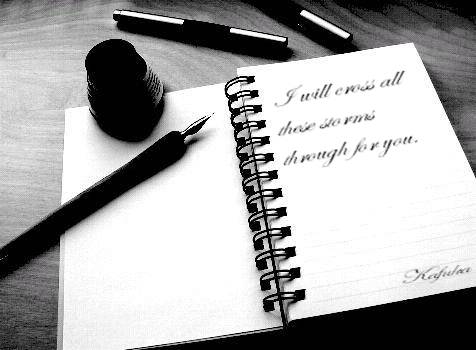 I will cross all
those storms
through for you.
Kafulea